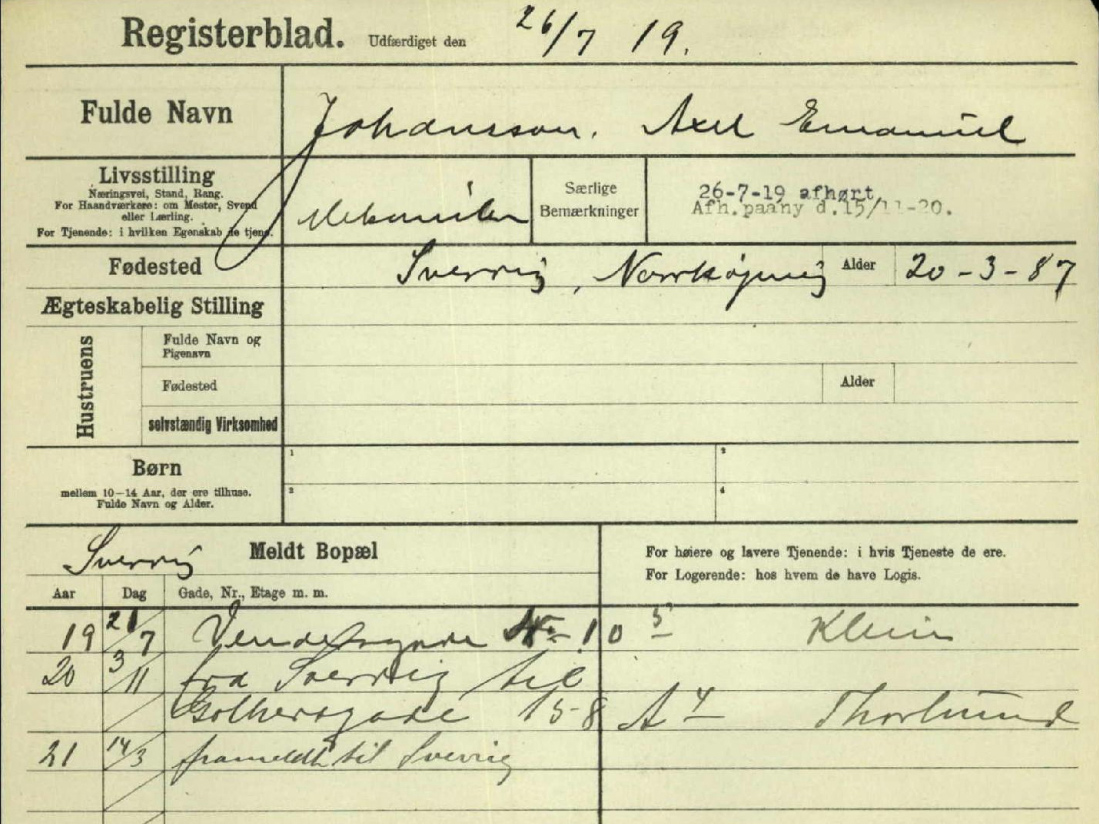 Registerblad. Udfærdiget den 26/7 19.
Fulde Navn Johansson. Axel Emanuel
Livsstilling
Næringsvei, Stand, Rang.
For Haandværkere: om Mester, Svend
eller Lærling.
For Tjenende: i hvilken Egenskab de tjene.
Mekaniker
Særlige
Bemærkninger
26-7-19 afhørt
Afh.paany d.15/11-20.
Fødested Sverrig, Norrkøping Alder 20-3-87
Ægteskabelig Stilling
Hustruens
Fulde Navn og
Pigenavn
Fødested Alder
selvstændig Virksomhed
Børn
mellem 10-14 Aar, der ere tilhuse.
Fulde Navn og Alder.
1 3
2 4
Sverrig Meldt Bopæl
For høiere og lavere Tjenende: i hvis Tjeneste de ere.
For Logerende: hos hvem de have Logis.
Aar Dag Gade, Nr., Etage m. m.
19 21/7 Vendersgade No 10 Klein
20 3/11 fra Sverrig til
Gothersgade 158 A 4 Thorlund
21 14/3 frameldt til Sverrig